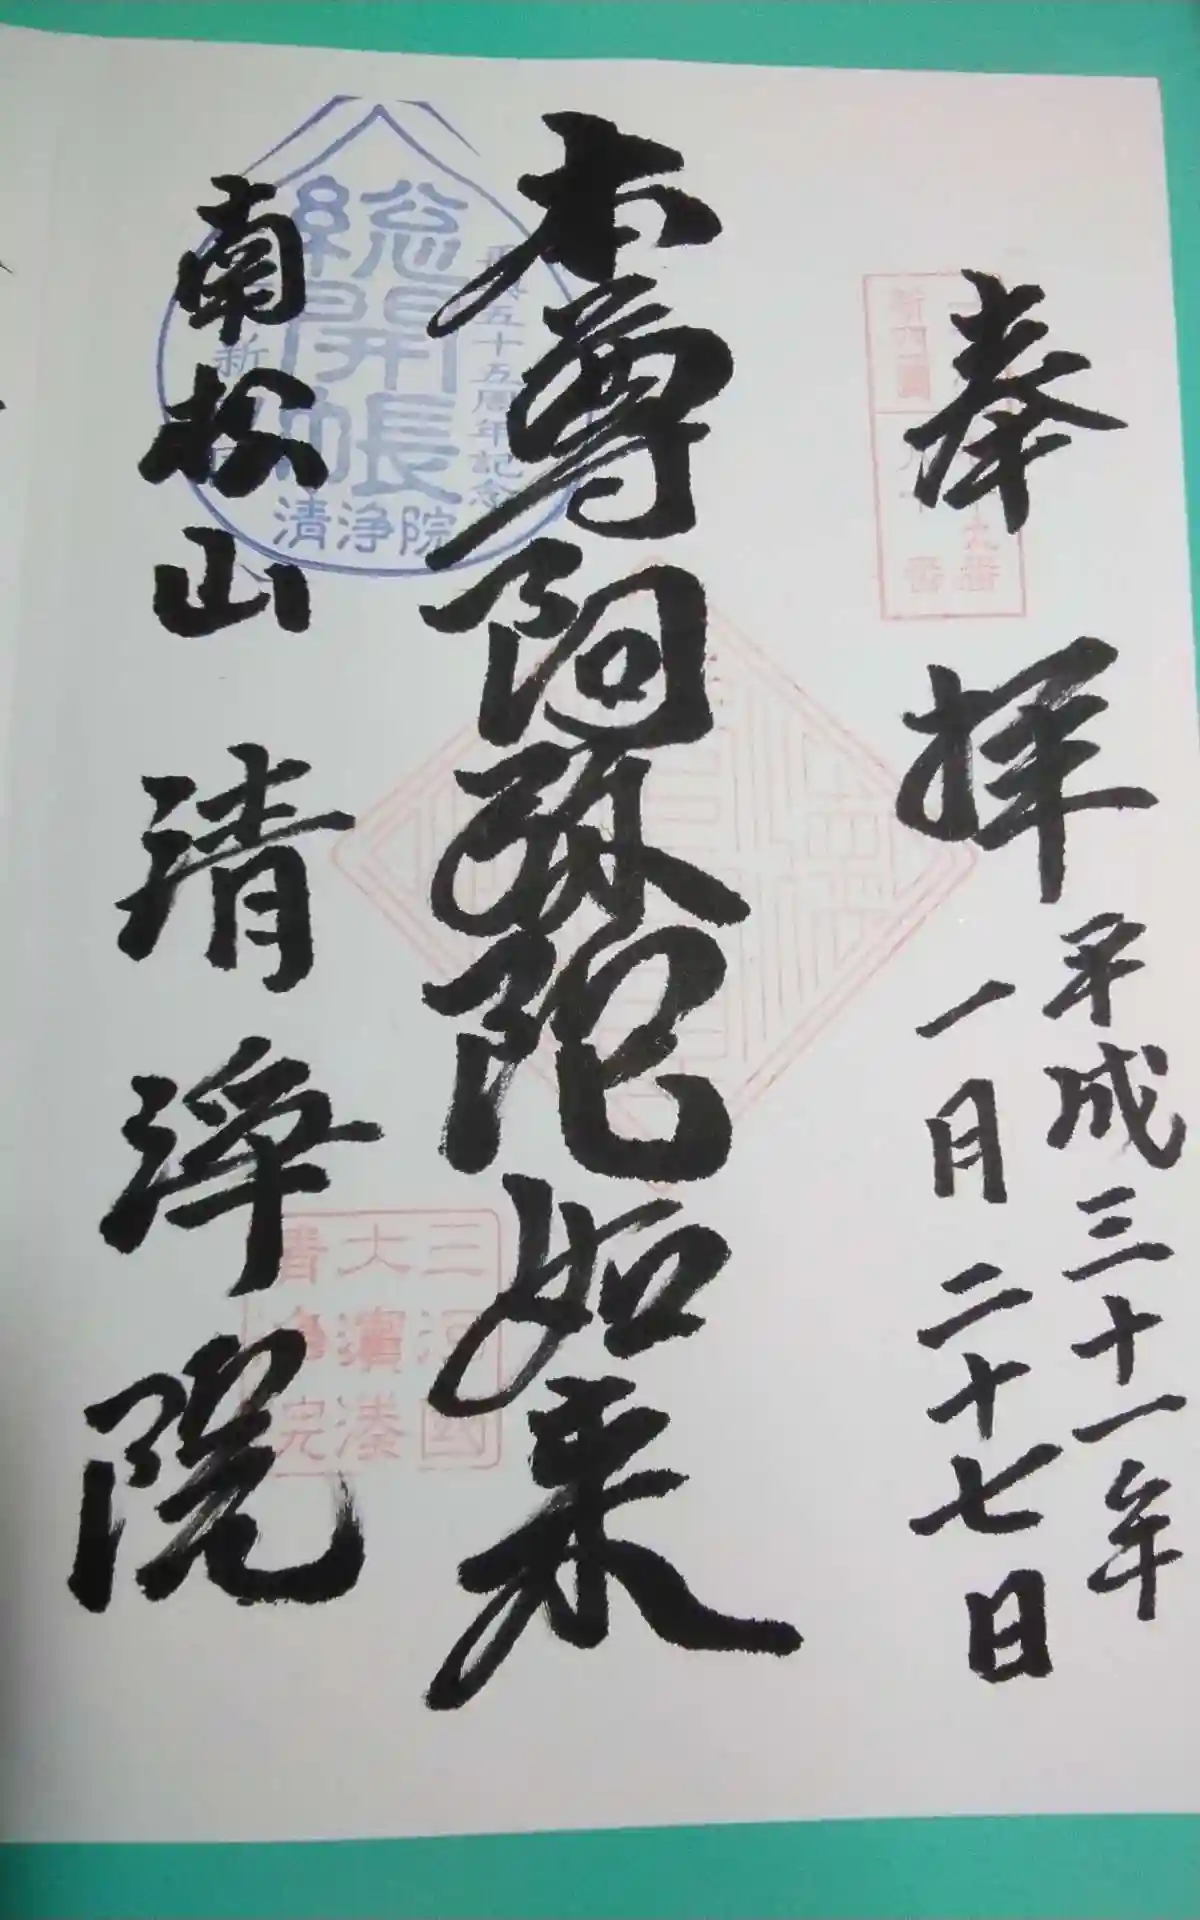 奉拝
平成三十一年
一月二十七日
本尊阿弥陀如来
南松山清浄院
総開帳
五十五周年記念
新
清浄院
新四国
九番
番
三河国
大濱湊
清浄院